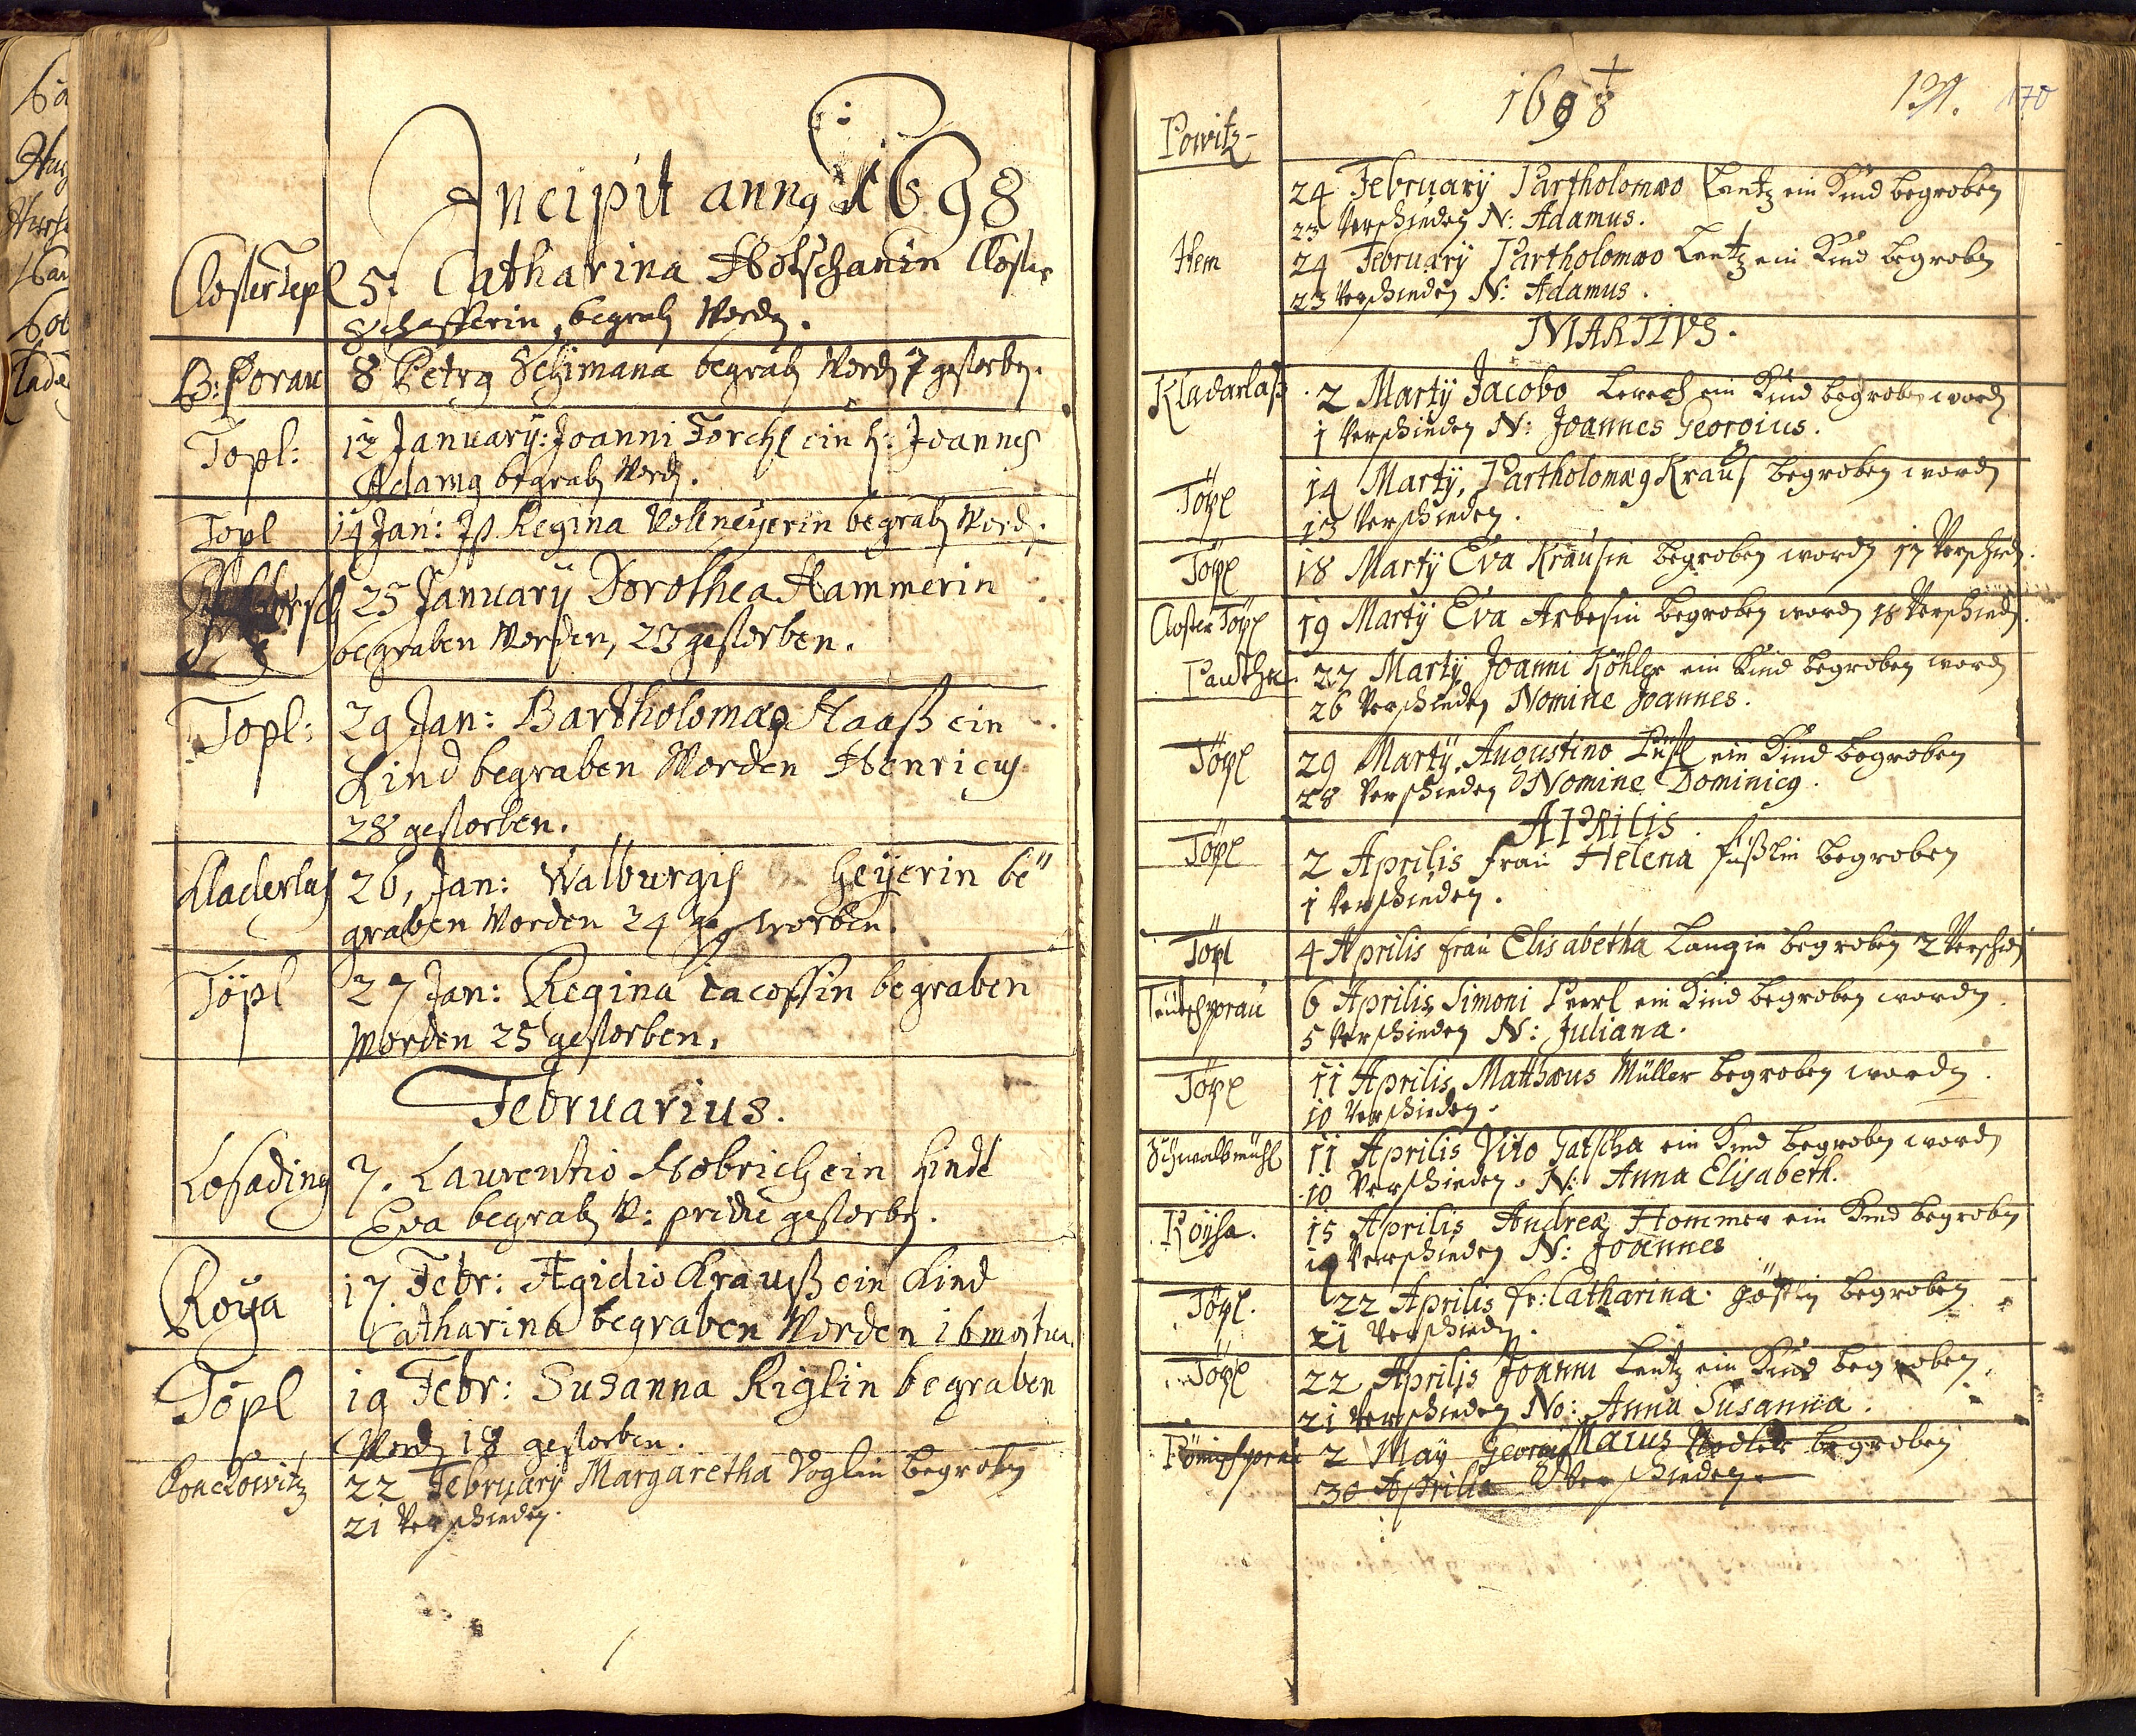 Incipit annꝯ 1698
Closter Tepl 5. Catharina Hotschanin Closter
Schafferin begrabn Wordn.
B: Borau 8 Petrꝯ Schimana begrabn Wordn 7 gestorbn.
Topl: 12 January: Joanni Forchl ein k: Joannes
Adamꝯ begrabn Wordn.
Topl 14 Jan: Ist Regina Vollneyerin begrabn Word.
25 January Dorothea Hammerin
begraben Worden, 23 gestorben.
Topl: 29 Jan: Bartholomæꝯ Haaß ein
Kind begraben Worden Henricus
28 gestorben.
Kladerlas 26, Jan: Walburgis Geyerin be
graben Worden 24 gestworben.
Töpl 27 Jan: Regina begraben
Worden 25 gestorben.
Februarius.
Losading 7. Laurentio Hobrich ein Kindt
Eva begrabn W: pridie gestorbn.
Roya 17 Febr: Ægidio Krauß ein Kind
Catharina begraben Worden 16 mortua
Töpl 19 Febr: Susanna Riglin begraben
Wordn 18 gestorben.
22 February Margaretha Voglin begrobn
21 Verschieden.
1698
131. 170
Powitz
24 February Partholomæo Lentz ein Kind begroben
23 Verschieden N: Adamus.
Item 24 February Partholomæo Lentz ein Kind begroben
23 Verschieden N: Adamus.
MARTIVS.
Kladarlaß 2 Martij Jacobo Lerch ein Kind begroben wordn
1 Verschieden N: Joannes Georgius.
Töpl 14 Martij, Partholomæꝯ Kraus begroben wordn
13 Verschieden.
Töpl 18 Martij Eva Krausin begroben wordn 17 Verschiedn.
Closter Töpl 19 Martij Eva Arbesin begroben wordn 18 Verschiedn.
27 Martij Joanni Köhler ein Kind begroben wordn
26 Verschieden Nomine Joannes.
Töpl 29 Martij Augustino ein Kind begroben
28 Verschieden Nomine Dominicꝯ.
APRILIS.
Töpl 2 Aprilis frau Helena begroben
1 Verschieden.
Töpl 4 Aprilis frau Elisabetha Langin begroben 2 Verschiedn
Teutschporau 6 Aprilis Simoni Peerl ein Kind begroben wordn.
5 Verschieden N: Juliana.
Töpl 11 Aprilis, Matthæus Müller begroben wordn.
10 Verschieden.
Schwalbmühl 11 Aprilis Vito Gatscha ein Kind begroben wordn
10 Verschieden. N: Anna Elisabeth.
Roÿsa. 15 Aprilis Andreæ Hommer ein Kind begroben
14 Verschieden N: Joannes
Töpl. 22 Aprilis fr: Catharina begroben
21 Verschiedn.
Töpl 22 Aprilis Joanni Lentz ein Kind begroben,
21 Verschieden No: Anna Susanna.
Maius
2 May Georgiꝯ begroben
30 Aprilis Verschieden.